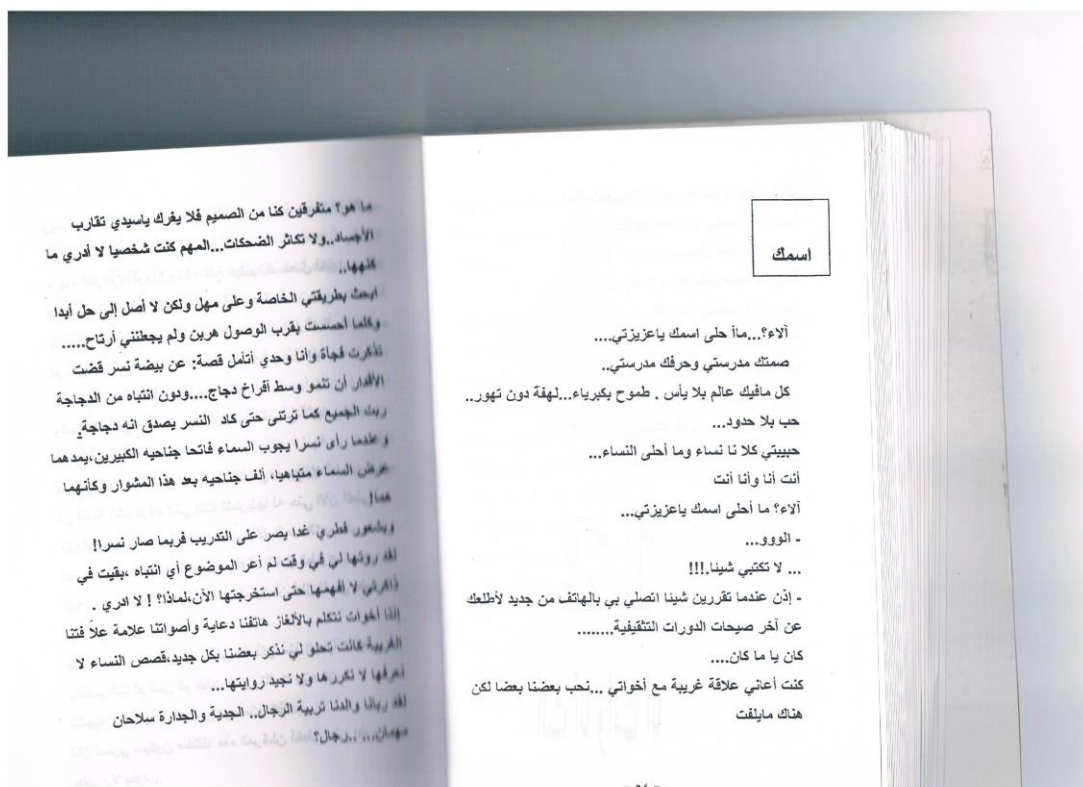 اسمك
آلاء؟...ماأ حلى اسمك ياعزيزتي....
صمتك مدرستي وحرفك مدرستي..
كل مافيك عالم بلا يأس . طموح بكبرياء...لهفة دون تهور..
حب بلا حدود...
حبيبتي كلا نا نساء وما أحلى النساء...
أنت أنا وأنا أنت
آلاء؟ ما أحلى اسمك ياعزيزتي...
- الووو...
... لا تكتبي شينا.!!!
- إذن عندما تقررين شينا اتصلي بي بالهاتف من جديد لأطلعك
عن آخر صيحات الدورات التثقيفية........
كان يا ما كان....
كنت أعاني علاقة غريبة مع أخواتي ...نحب بعضنا بعضا لكن
هناك مايلفت
ما هو؟ متفرقين كنا من الصميم فلا يغرك ياسيدي تقارب
الأجساد..ولا تكاثر الضحكات...المهم كنت شخصيا لا أدري ما
كنهها..
ابحث بطريقتي الخاصة وعلى مهل ولكن لا أصل إلى حل أبدا
وكلما أحسست بقرب الوصول هربن ولم يجعلنني أرتاح.....
تذكرت فجأة وأنا وحدي أتأمل قصة: عن بيضة نسر قضت
الأقدار أن تنمو وسط أفراخ دجاج....ودون انتباه من الدجاجة
ربت الجميع كما ترتئى حتى كاد النسر يصدق انه دجاجة.
وعندما رأى نسرا يجوب السماء فاتحا جناحيه الكبيرين،يمدهما
عرض السماء متباهيا، ألف جناحيه بعد هذا المشوار وكأنهما
هما!
وبشعور فطري غدا يصر على التدريب فربما صار نسرا!
لقد روتها لي في وقت لم أعر الموضوع أي انتباه ،بقيت في
ذاكرتي لا أفهمها حتى استخرجتها الأن،لماذا؟ ! لا ادري .
إننا أخوات نتكلم بالألغاز هاتفنا دعاية وأصواتنا علامة علا فتنا
الغريبة كانت تحلو لي نذكر بعضنا بكل جديد،قصص النساء لا
نعرفها لا نكررها ولا نجيد روايتها...
لقد ربانا والدنا تربية الرجال.. الجدية والجدارة سلاحان
مهمان.... ..رجال؟